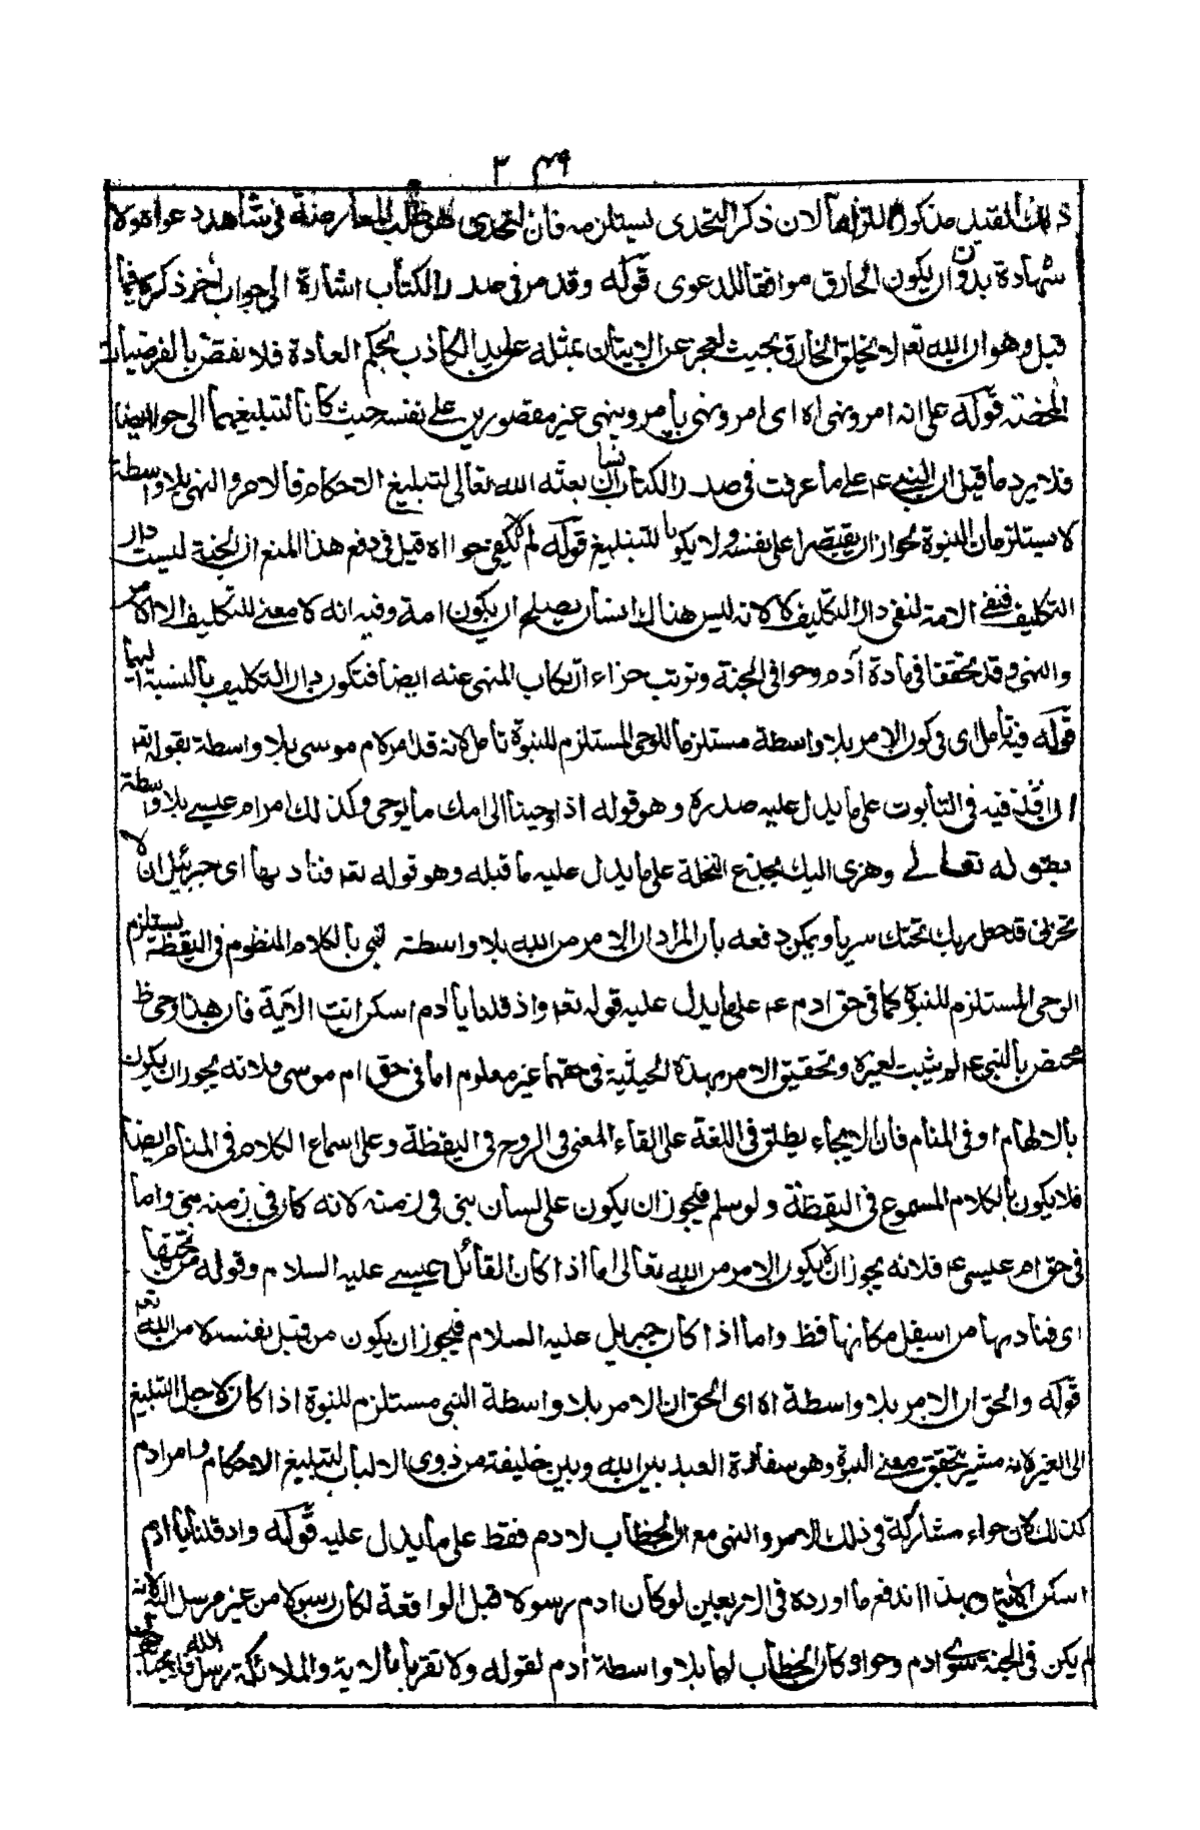 ٣٤٩
ذلك القيد مذكور التزاما لان ذكر التحدى يستلزمه فان التحدى هو طلب المعارضة فى شاهد دعواه ولا
شهادة بدون ان يكون الخارق موافقا للدعوى قوله وقد مر فى صدر الكتاب اشارة الى جواب اخر ذكره فيما
قبل وهو ان الله تعم لا يخلق الخارق بحيث لعجز عن الاتيان بمثله على يد الكاذب بحكم العادة فلا ينقض بالفرضيات
المحضة قوله على انه امر ونهى اه اى امر ونهى بامر وينهى غير مقصورين على نفسه حيث كانا لتبليغهما الى حوا ايضا
فلا يرد ما قيل ان النبى عم على ما عرفت فى صدر الكتاب انسان بعثه الله تعالى لتبليغ الاحكام فالامر والنهى بلا واسطة
لا يستلزمان النبوة لجواز ان يقتصرا على نفسه ولا يكونا للتبليغ قوله لم لا يكفى حوا اه قيل فى دفع هذا المنع ان الجنة ليست دار
التكليف فنفى الامة لنفى دار التكليف لا لانه ليس هناك انسان يصلح ان يكون امة وفيه انه لا معنى للتكليف الا الامر
والنهى وقد تحققا فى مادة آدم وحوا فى الجنة وترتب جزاء ارتكاب المنهى عنه ايضا فتكون دار التكليف بالنسبة اليهما
قوله فيه تامل اى فى كون الامر بلا واسطة مستلزما للوحى المستلزم للنبوة تامل لانه قد امر ام موسى بلا واسطة بقوله تعم
ان اقذفيه فى التابوت على ما يدل عليه صدره وهو قوله اذ اوحينا الى امك ما يوحى وكذلك امر ام عيسى بلا واسطة
بقوله تعالى وهزى اليك بجذع النخلة على ما يدل عليه ما قبله وهو قوله تعم فناديها اى جبرئيل ان لا
تحزنى قد جعل ربك تحتك سريا ويمكن دفعه بان المراد ان الامر من الله بلا واسطة نبى بالكلام المنظوم فى اليقظة يستلزم
الوحى المستلزم للنبوة كما فى حق ادم عم على ما يدل عليه قوله تعم واذ قلنا يا آدم اسكن انت الآية فان هذا وحى ظ
مختص بالنبى عم لم يثبت لغيره وتحقيق الامر بهذه الحيثية فى حقهما غير معلوم اما فى حق ام موسى فلانه يجوز ان يكون
بالالهام او فى المنام فان الايحاء يطلق فى اللغة على القاء المعنى فى الروح فى اليقظة وعلى اسماع الكلام فى المنام ايضا
فلا يكون بالكلام المسموع فى اليقظة ولو سلم فيجوز ان يكون على لسان نبى فى زمنه لانه كان فى زمنه نبى واما
فى حق ام عيسى عم فلانه يجوز ان لا يكون الامر من الله تعالى اما اذا كان القائل عيسى عليه السلام وقوله من تحتها
اى فناديها من اسفل مكانها فظ واما اذا كان جبريل عليه السلام فيجوز ان يكون من قبل نفسه لا من الله تعم
قوله والحق ان الامر بلا واسطة اه اى الحق ان الامر بلا واسطة النبى مستلزم للنبوة اذا كان لاجل التبليغ
الى الغير لانه مشير بتحقق معنى النبوة وهو سفارة العبد بين الله وبين خليفته من ذوى الالباب لتبليغ الاحكام وامر ادم
كذلك كان حواء مشاركة فى ذلك الامر والنهى مع ان الخطاب لادم فقط على ما يدل عليه قوله واذ قلنا يا ادم
اسكن الاية وبهذا اندفع ما اورده فى الاربعين لو كان ادم رسولا قبل الواقعة لكان رسولا من غير مرسل اليه لانه
لم يكن فى الجنة سوى ادم وحوا وكان الخطاب لهما بلا واسطة آدم لقوله ولا تقربا بالاية والملائكة رسل الله فلا